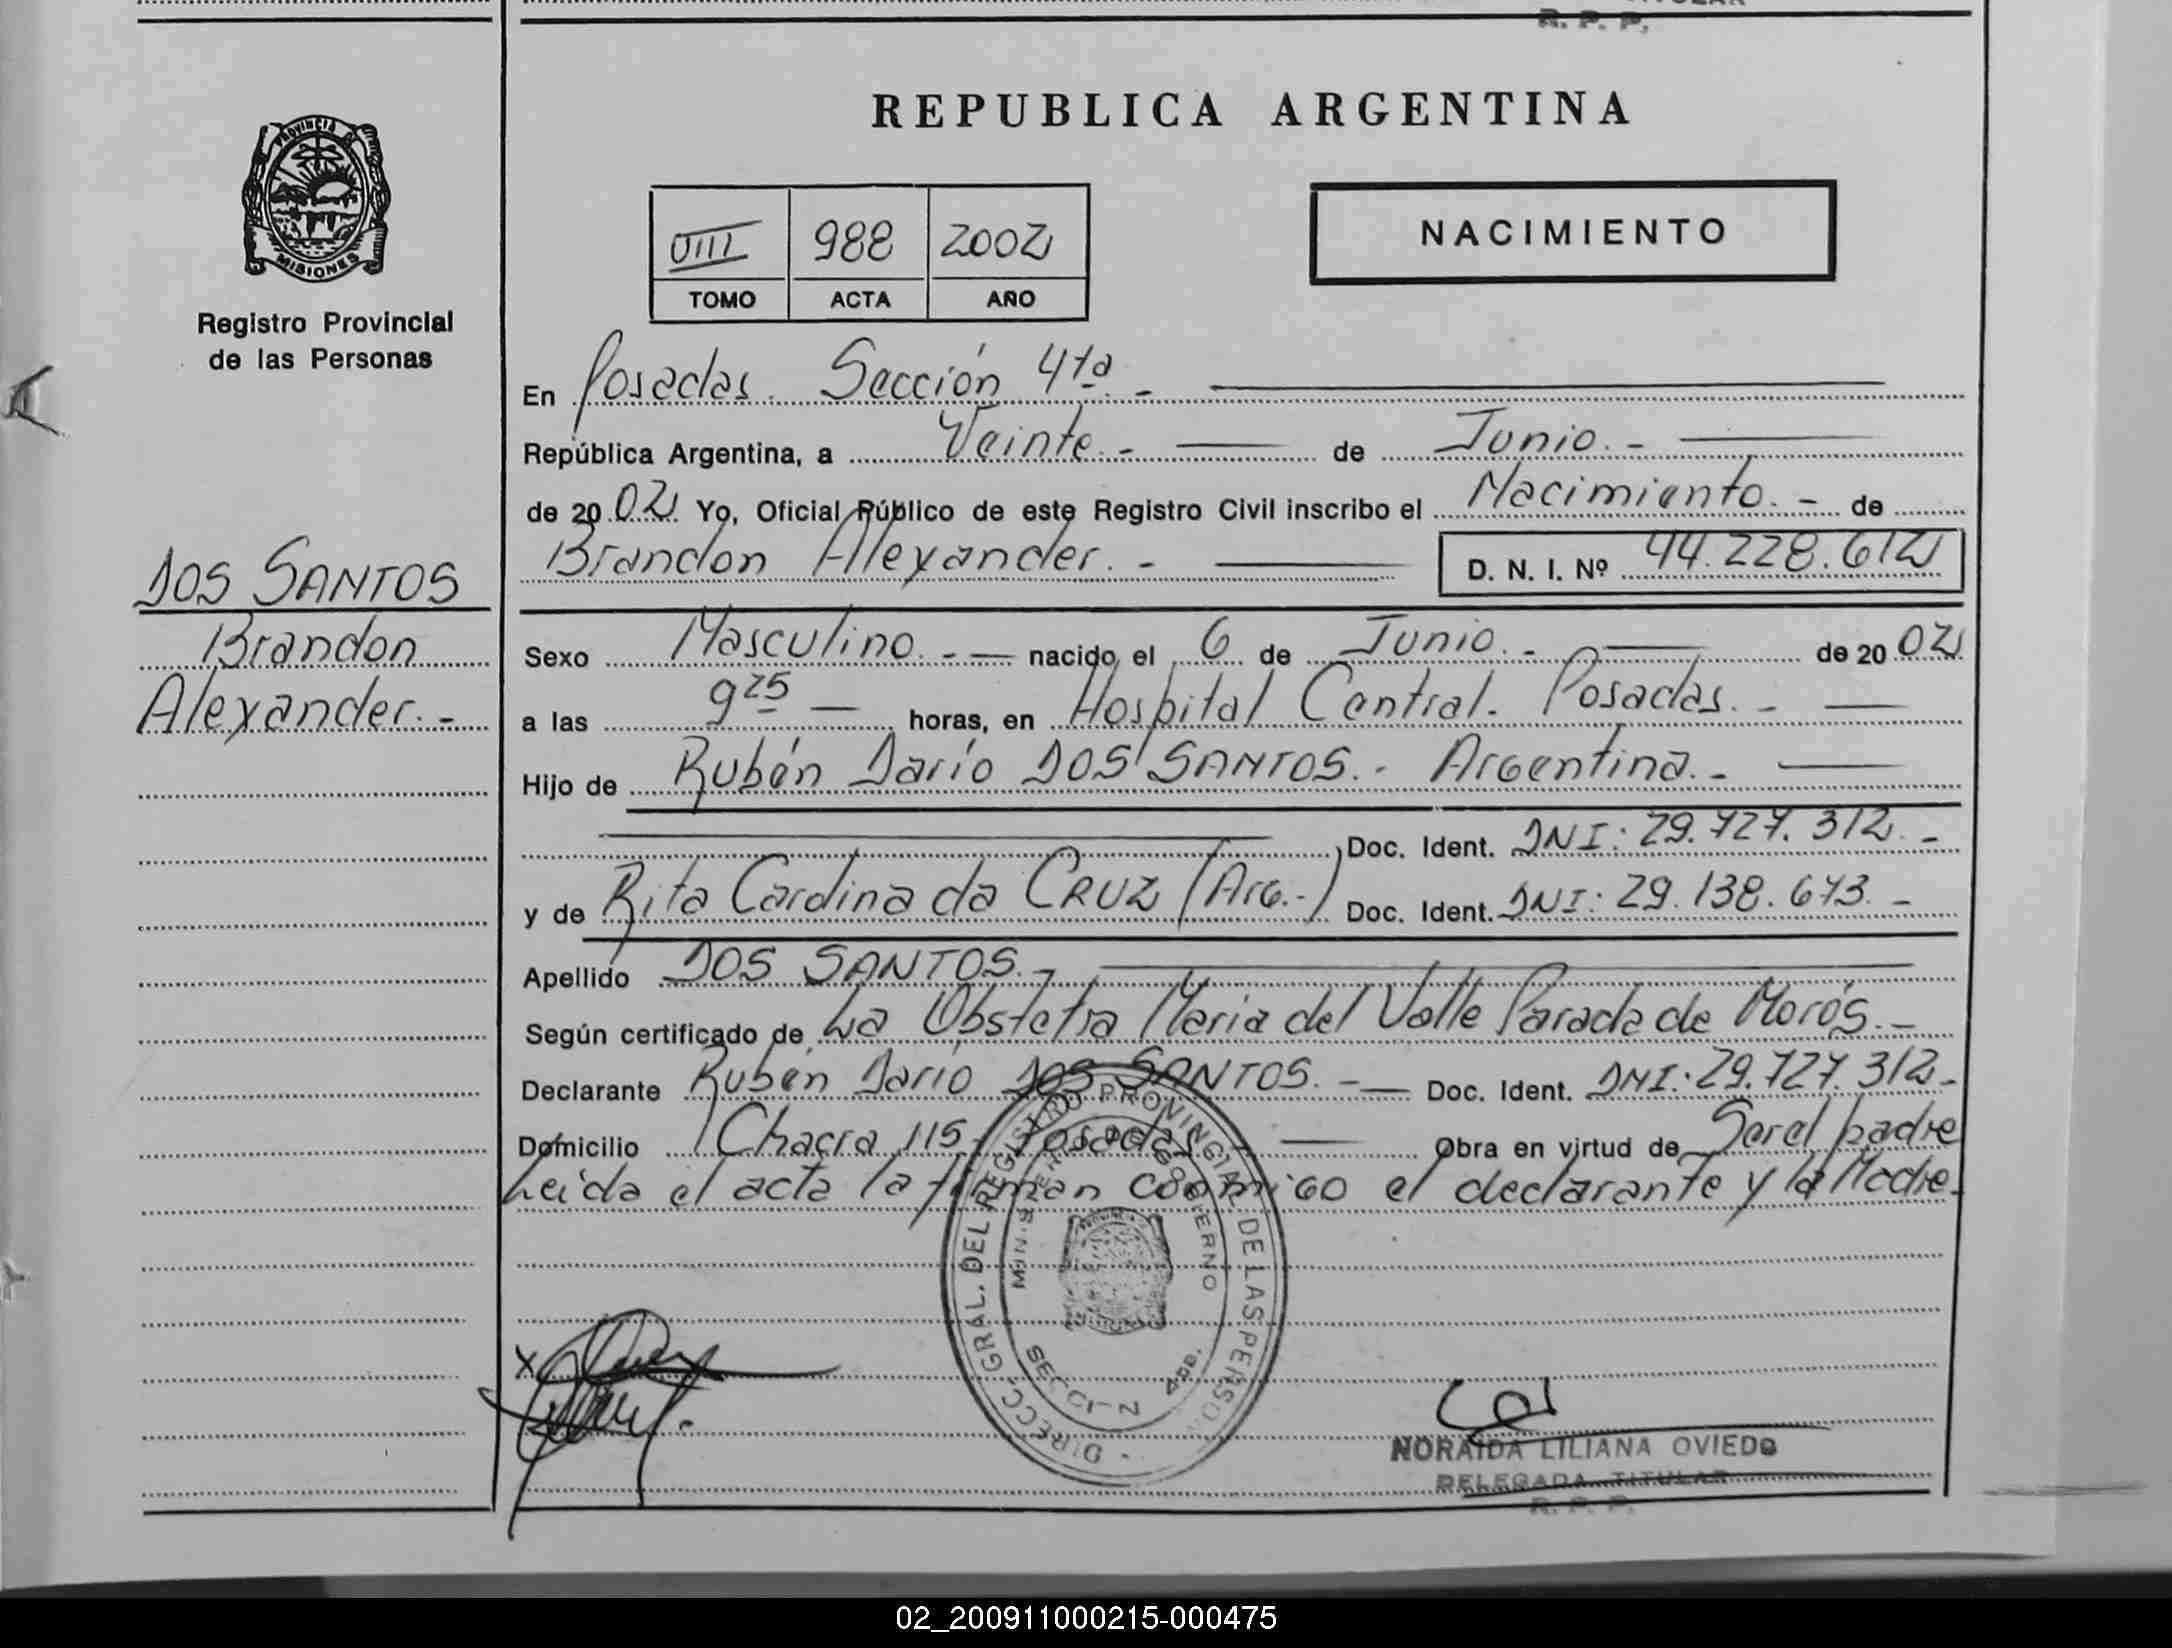 R. P. P.
PROVINCIA DE
MISIONES
Registro Provincial
de las Personas
REPUBLICA ARGENTINA
VIII 988 2002
TOMO ACTA AÑO
NACIMIENTO
En Posadas. Sección 4ta. -
República Argentina, a Veinte. - de Junio. -
de 2002 Yo, Oficial Público de este Registro Civil inscribo el Nacimiento. - de
Brandon Alexander. - D. N. I. Nº 44.228.612
DOS SANTOS
Brandon
Alexander. -
Sexo Masculino. - nacido el 6 de Junio. - de 2002
a las 9 25 horas, en Hospital Central. Posadas. -
Hijo de Rubén Darío DOS SANTOS. - Argentina. -
Doc. Ident. DNI: 29.727.312. -
y de Rita Cardina da CRUZ (Arg.-) Doc. Ident. DNI: 29.138.673. -
Apellido DOS SANTOS. -
Según certificado de La Obstetra Maria del Valle Parada de Morós. -
Declarante Rubén Darío DOS SANTOS. - Doc. Ident. DNI: 29.727.312 -
Domicilio Chacra 115. Posadas - Obra en virtud de Ser el padre
Leída el acta la firman conmigo el declarante y la Madre.
DIRECC. GRAL. DEL REGISTRO PROVINCIAL DE LAS PERSON
MINISTERIO DE GOBIERNO
SECCION 4ta.
NORAIDA LILIANA OVIEDO
DELEGADA TITULAR
R. P. P.
02_200911000215-000475